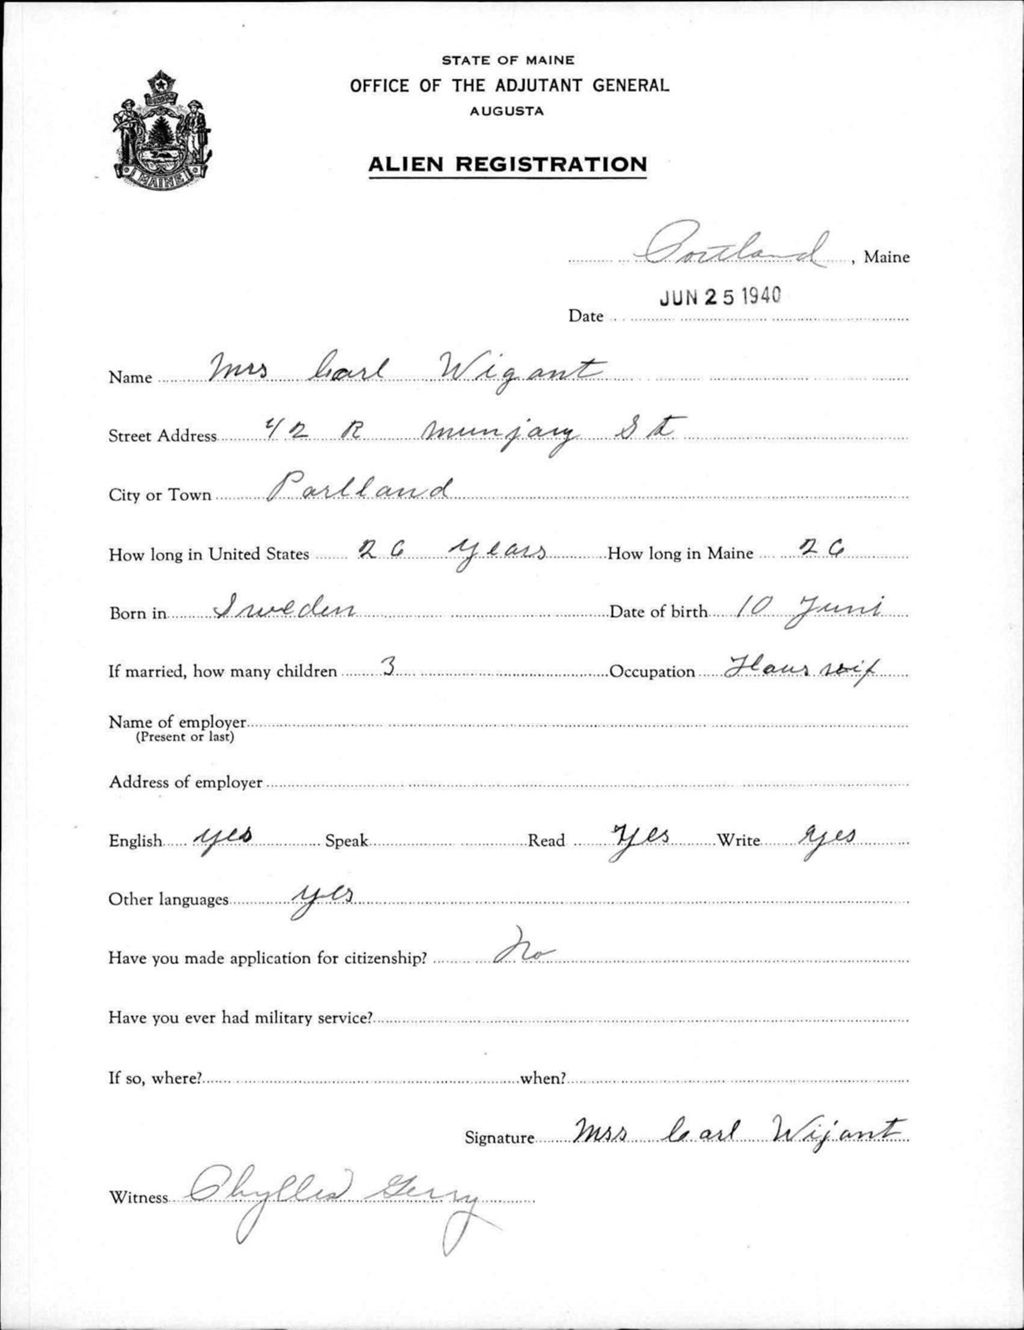 STATE OF MAINE
OFFICE OF THE ADJUTANT GENERAL
AUGUSTA
ALIEN REGISTRATION
MAINE
Portland, Maine
Date JUN 25 1940
Name Mrs Carl Wigant
Street Address 42 R Munjary St
City or Town Portland
How long in United States 26 years How long in Maine 26
Born in Sweden Date of birth 10 Juni
If married, how many children 3 Occupation Hauswif
Name of employer
(Present or last)
Address of employer
English yes Speak Read Yes Write yes
Other languages yes
Have you made application for citizenship? No
Have you ever had military service?
If so, where? when?
Signature Mrs Carl Wijant
Witness Phyllis Gerry